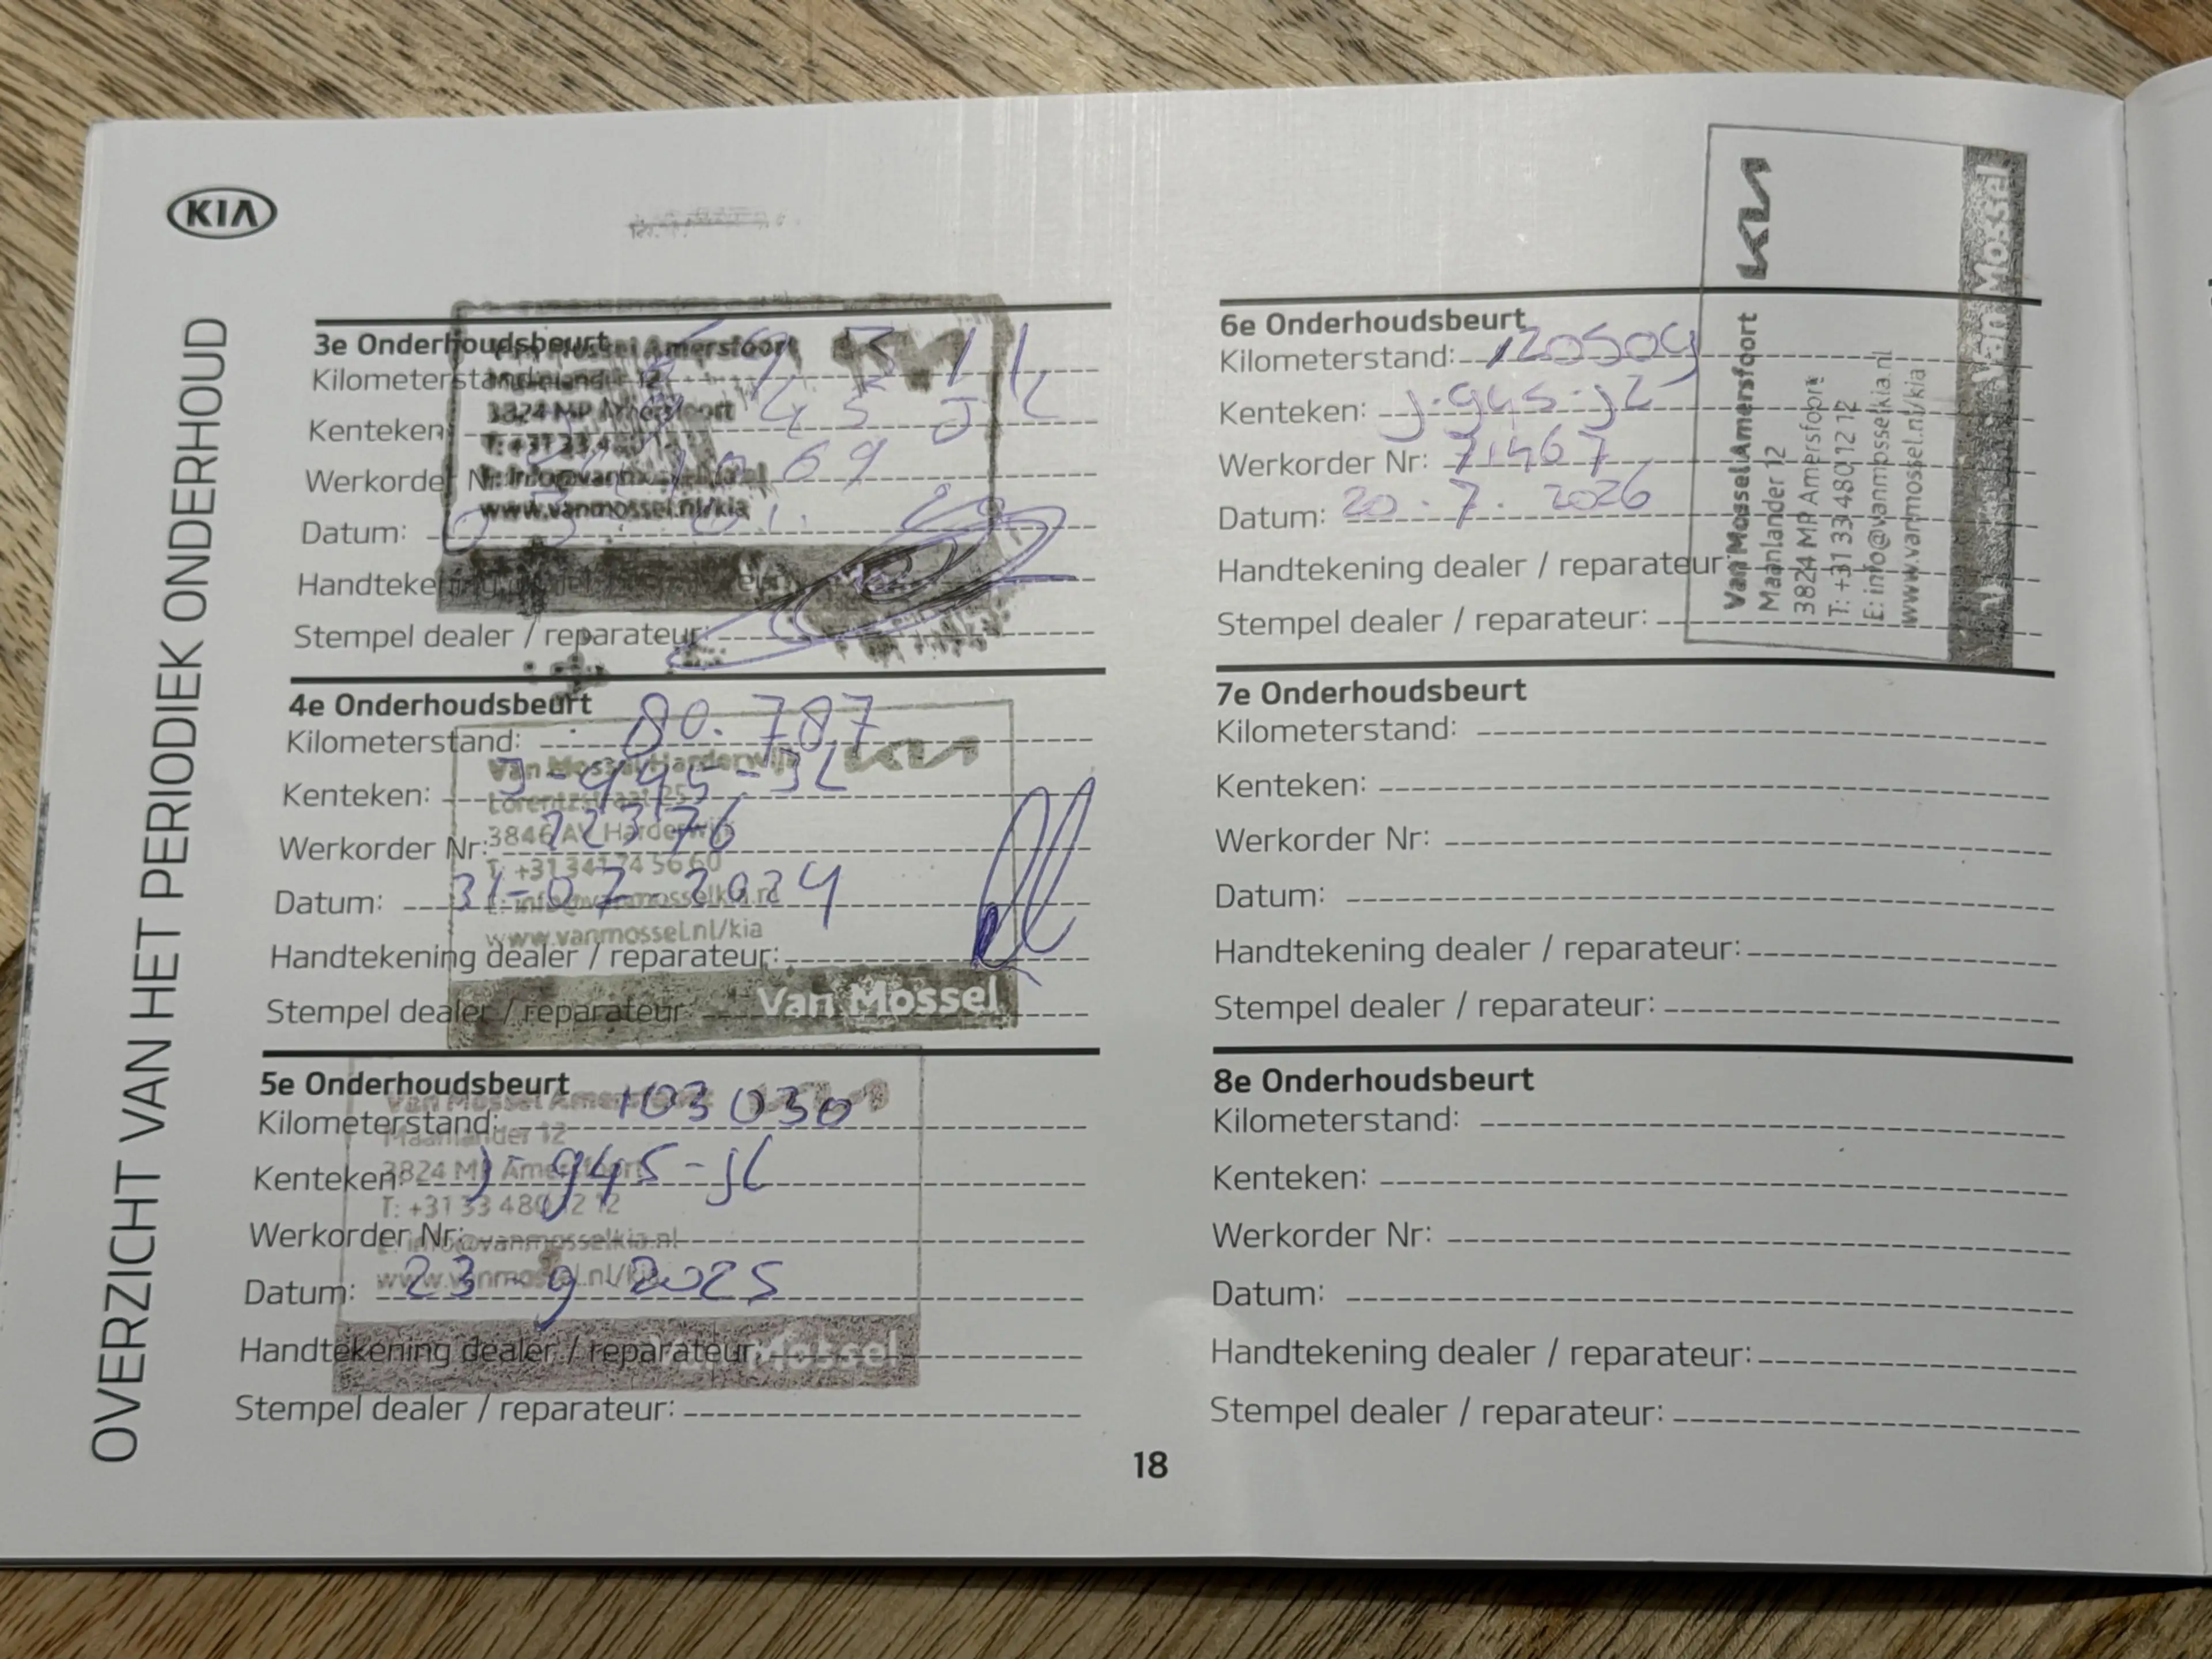 KIA
OVERZICHT VAN HET PERIODIEK ONDERHOUD
3e Onderhoudsbeurt
Kilometerstand:
Kenteken:
Werkorder Nr:
Datum:
Handtekening dealer / reparateur:
Stempel dealer / reparateur:
Van Mossel Amersfoort
3824 MP Amersfoort
info@vanmosselkia.nl
www.vanmossel.nl/kia
4e Onderhoudsbeurt
Kilometerstand: 80.787
Kenteken: J-945-JL
Werkorder Nr: 22376
Datum: 31-07-2024
Handtekening dealer / reparateur:
Stempel dealer / reparateur:
KIA
Van Mossel Harderwijk
Lorentzstraat 25
3846 AV Harderwijk
T: +31 341 74 56 60
E: info@vanmosselkia.nl
www.vanmossel.nl/kia
Van Mossel
5e Onderhoudsbeurt
Kilometerstand: 103030
Kenteken: J-945-JL
Werkorder Nr:
Datum: 23-9 2025
Handtekening dealer / reparateur:
Stempel dealer / reparateur:
Van Mossel Amersfoort
Maanlander 12
3824 MP Amersfoort
T: +31 33 480 12 12
E: info@vanmosselkia.nl
www.vanmossel.nl/kia
Van Mossel
6e Onderhoudsbeurt
Kilometerstand: 120509
Kenteken: J-945-JL
Werkorder Nr: 71467
Datum: 20.7.2026
Handtekening dealer / reparateur:
Stempel dealer / reparateur:
KIA
Van Mossel Amersfoort
Maanlander 12
3824 MP Amersfoort
T: +31 33 480 12 12
E: info@vanmosselkia.nl
www.vanmossel.nl/kia
Van Mossel
7e Onderhoudsbeurt
Kilometerstand:
Kenteken:
Werkorder Nr:
Datum:
Handtekening dealer / reparateur:
Stempel dealer / reparateur:
8e Onderhoudsbeurt
Kilometerstand:
Kenteken:
Werkorder Nr:
Datum:
Handtekening dealer / reparateur:
Stempel dealer / reparateur:
18